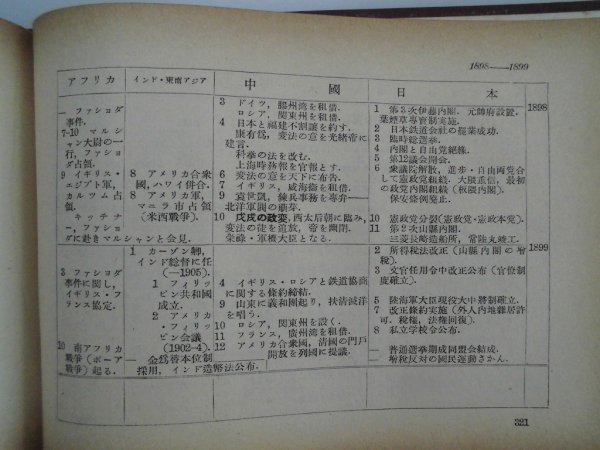 1898——1899
アフリカ
インド・東南アジア
中國
日本
— ファショダ
事件.
7-10 マルシ
ャン大尉の一
行,ファショ
ダ占領.
9 イギリス・
エジプト軍,
カルツム占
領.
キッチナ
ー,ファショ
ダに赴きマルシャンと会見.
3 ファショダ
事件に関し,
イギリス・フ
ランス協定.
10 南アフリカ
戰爭(ボーア
戰爭)起る.
8 アメリカ合衆
國,ハワイ併合.
8 アメリカ軍,
マニラ市占領
(米西戰爭).
1 カーゾン卿,
インド総督に任
(—1905).
1 フィリッ
ピン共和国
成立.
2 アメリカ
・フィリッ
ピン会議
(1902-4).
— 金爲替本位制
採用,インド造幣法公布.
3 ドイツ,膠州湾を租借.
ロシア,関東州を租借.
4 日本と福建不割譲を約す.
康有爲,変法の意を光緒帝に
建言.
科挙の法を改む.
上海時務報を官報とす.
6 変法の意を天下に布告.
7 イギリス,威海衞を租借.
9 袁世凱,練兵事務を専弁—
北洋軍閥の萠芽.
10 戊戌の政変,西太后朝に臨み,
変法の徒を追放,帝を幽閉.
榮祿・軍機大臣となる.
4 イギリス・ロシアと鉄道協商
に関する條約締結.
9 山東に義和團起り,扶清滅洋
を唱う.
10 ロシア,関東州を設く.
11 フランス,廣州湾を租借.
12 アメリカ合衆國,清国の門戸
開放を列國に提議.
1 第3次伊藤内閣.元帥府設置.
葉煙草專賣制実施.
2 日本鉄道会社の罷業成功.
3 臨時総選挙.
4 内閣と自由党絶縁.
5 第12議会開会.
6 衆議院解散,進歩・自由両党合
して憲政党組織.大隈重信,最初
の政党内閣組織(板隈内閣).
保安條例廃止.
10 憲政党分裂(憲政党・憲政本党).
11 第2次山縣内閣.
三菱長崎造船所,常陸丸竣工.
2 所得税法改正(山縣内閣の増
税).
3 文官任用令中改正公布(官僚制
度確立).
5 陸海軍大臣現役大中將制確立.
7 改正條約実施(外人内地雜居許
可.税権,法権回復).
8 私立学校令公布.
— 普通選挙期成同盟会結成.
— 増税反対の國民運動さかん.
1898
1899
321